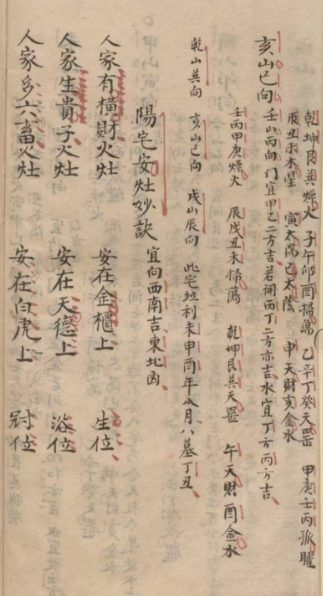 乾坤艮巽燥火 子午卯酉掃蕩 乙辛丁癸天罡 甲庚壬丙孤曜
辰戌丑未木星 寅太陽巳太陰 申天財亥金水
壬山丙向門宜甲乙二方吉若開丙丁二方亦吉水宜丁方丙方吉
亥山巳向
壬丙甲庚燥火 辰戌丑未掃蕩 乾坤艮巽天罡 午天財酉金水
乾山巽向 亥山巳向 戌山辰向 此宅姓利未申酉年八月八墓丁丑
陽宅安灶妙訣 宜向西南吉東北凶
人家有橫財火灶 安在金櫃上 生位
人家生貴子火灶 安在天德上 浴位
人家多六畜火灶 安在白虎上 冠位